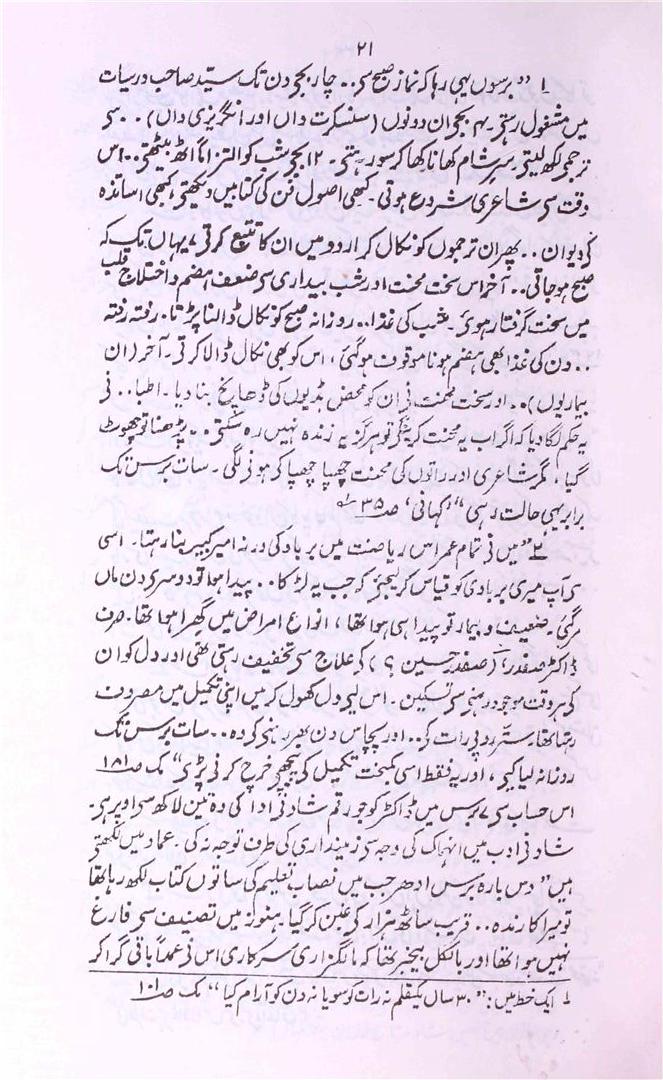 ۲۱
۱ "برسوں یہی رہا کہ نماز صبح سی .. چار بجی دن تک سیّد صاحب درسیات
میں مشغول رہتی۔ ۴ بجی ان دونوں (سنسکرت داں اور انگریزی داں) .. سی
ترجمی لکھ لیتی۔ سر شام کھانا کھا کر سو رہتی۔ ۱۲ بجی شب کو التزاماً اٹھ بیٹھتی .. اس
وقت سی شاعری شروع ہوتی۔ کبھی اصول فن کی کتابیں دیکھتی، کبھی اساتذہ
کی دیوان .. پھر ان ترجموں کو نکال کر اردو میں ان کا تتبع کرتی، یہاں تک کہ
صبح ہو جاتی .. آخر اس سخت محنت اور شب بیداری سی ضعف ہضم و اختلاج قلب
میں سخت گرفتار ہوئی۔ شب کی غذا .. روزانہ صبح کو نکال ڈالنا پڑتا۔ رفتہ رفتہ
.. دن کی غذا بھی ہضم ہونا موقوف ہو گئی، اس کو بھی نکال ڈالا کرتی۔ آخر (ان
بیماریوں) .. اور سخت محنت نی ان کو محض ہڈیوں کی ڈھانچ بنا دیا۔ اطبا .. نی
یہ حکم لگا دیا کہ اگر اب یہ محنت کرینگی تو ہرگز یہ زندہ نہیں رہ سکتی .. پڑھنا تو چھوٹ
گیا، مگر شاعری اور راتوں کی محنت چھپا چھپا کی ہونی لگی۔ سات برس تک
برابر یہی حالت رہی" 'کہانی' ص ۳۵
۲ "میں نی تمام عمر اس ریاضت میں برباد کی ورنہ امیر کبیر بنا رہتا۔ اسی
سی آپ میری بربادی کو قیاس کر لیجئی کہ جب یہ لڑکا .. پیدا ہوا تو دوسری دن ماں
مر گئی۔ ضعیف و بیمار تو پیدا ہی ہوا تھا، انواع امراض میں گھرا ہوا تھا۔ صرف
ڈاکٹر صفدر (صفدر حسین ؟) کی علاج سی تخفیف رہتی تھی اور دل کو ان
کی ہر وقت موجود رہنی سی تسکین۔ اس لیی دل کھول کر میں اپنی تکمیل میں مصروف
رہتا تھا۔ ستّر روپی رات کی .. اور پچاس دن بھر رہنی کی دہ .. سات برس تک
روزانہ لیا کیی، اور یہ فقط اسی کمبخت تکمیل کی پیچھی خرچ کرنی پڑی" مک ص ۱۸۱
اس حساب سی ۷ برس میں ڈاکٹر کو جو رقم شاد نی ادا کی وہ تین لاکھ سی اوپر ہی۔
شاد نی ادب میں انہماک کی وجہ سی زمینداری کی طرف توجہ نہ کی۔ عماد میں لکھتی
ہیں "دس بارہ برس ادھر جب میں نصاب تعلیم کی ساتوں کتاب لکھ رہا تھا
تو میرا کارندہ .. قریب ساٹھ ہزار کی غبن کر گیا۔ ہنوز میں تصنیف سی فارغ
نہیں ہوا تھا اور بالکل بیخبر تھا کہ مالگزاری سرکاری اس نی عمداً باقی گرا کر
۱ ایک خط میں: "۳۰ سال یکقلم نہ رات کو سویا نہ دن کو آرام کیا" مک ص ۱۰۱